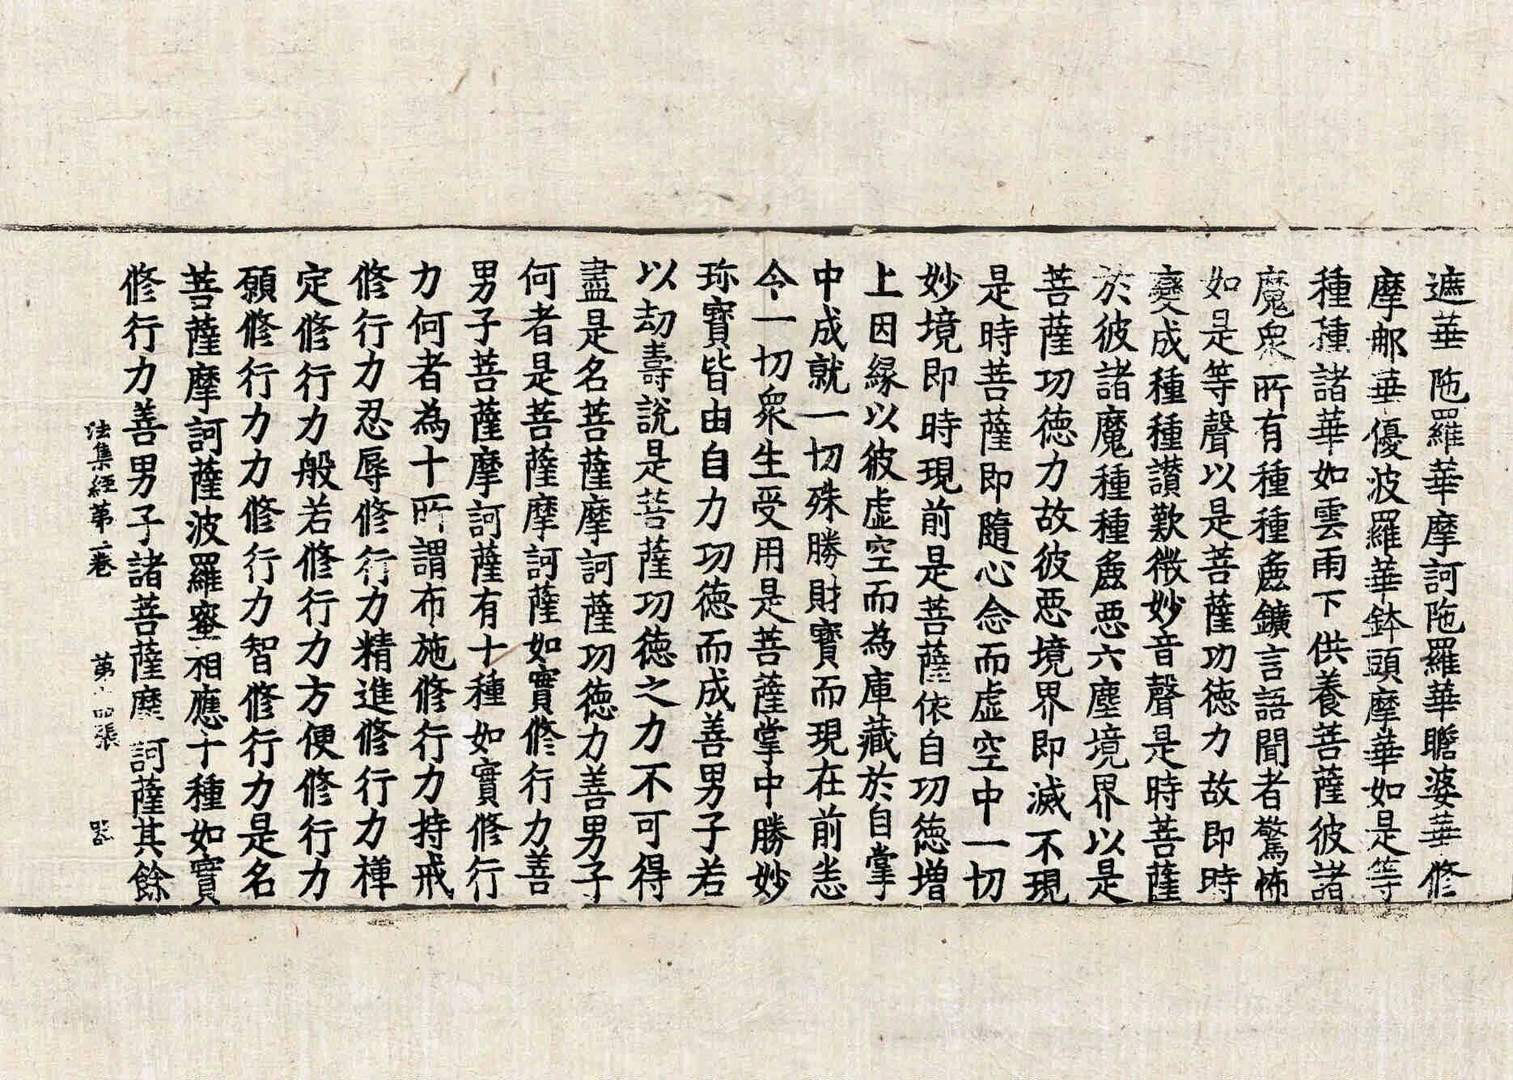 遮華陁羅華摩訶陁羅華瞻婆華修
摩那華優波羅華鉢頭摩華如是等
種種諸華如雲雨下供養菩薩彼諸
魔衆所有種種麁鑛言語聞者驚怖
如是等聲以是菩薩功德力故即時
變成種種讃歎微妙音聲是時菩薩
於彼諸魔種種麁惡六塵境界以是
菩薩功德力故彼惡境界即滅不現
是時菩薩即隨心念而虛空中一切
妙境即時現前是菩薩依自功德增
上因緣以彼虛空而為庫藏於自掌
中成就一切殊勝財寶而現在前恙
今一切衆生受用是菩薩掌中勝妙
珎寶皆由自力功德而成善男子若
以劫壽說是菩薩功德之力不可得
盡是名菩薩摩訶薩功德力善男子
何者是菩薩摩訶薩如實修行力善
男子菩薩摩訶薩有十種如實修行
力何者為十所謂布施修行力持戒
修行力忍辱修行力精進修行力禪
定修行力般若修行力方便修行力
願修行力力修行力智修行力是名
菩薩摩訶薩波羅蜜相應十種如實
修行力善男子諸菩薩摩訶薩其餘
法集經第二卷 第 四張